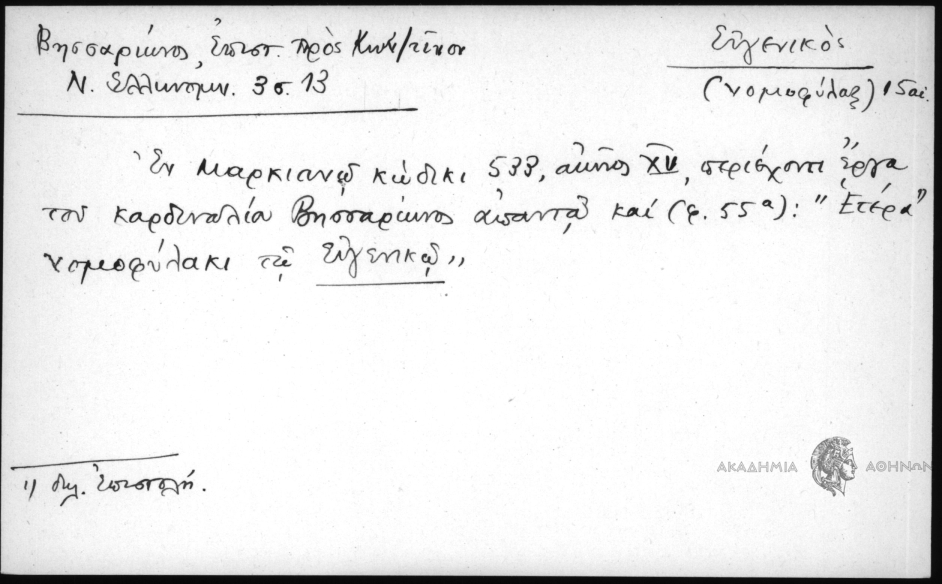 Βησσαρίωνος, Ἐπιστ. πρὸς Κων/τῖνον
Ν. Ἑλληνομν. 3 σ. 13
Εὐγενικὸς
(νομοφύλαξ) 15 αἰ.
Ἐν Μαρκιανῷ κώδικι 533, αἰῶνος XV, περιέχοντι ἔργα
τοῦ καρδιναλίου Βησσαρίωνος ἀπαντᾷ καί (φ. 55α): "Ἑτέρα¹⁾
νομοφύλακι τῷ Εὐγενικῷ"
1) δηλ. ἐπιστολή.
ΑΚΑΔΗΜΙΑ ΑΘΗΝΩΝ